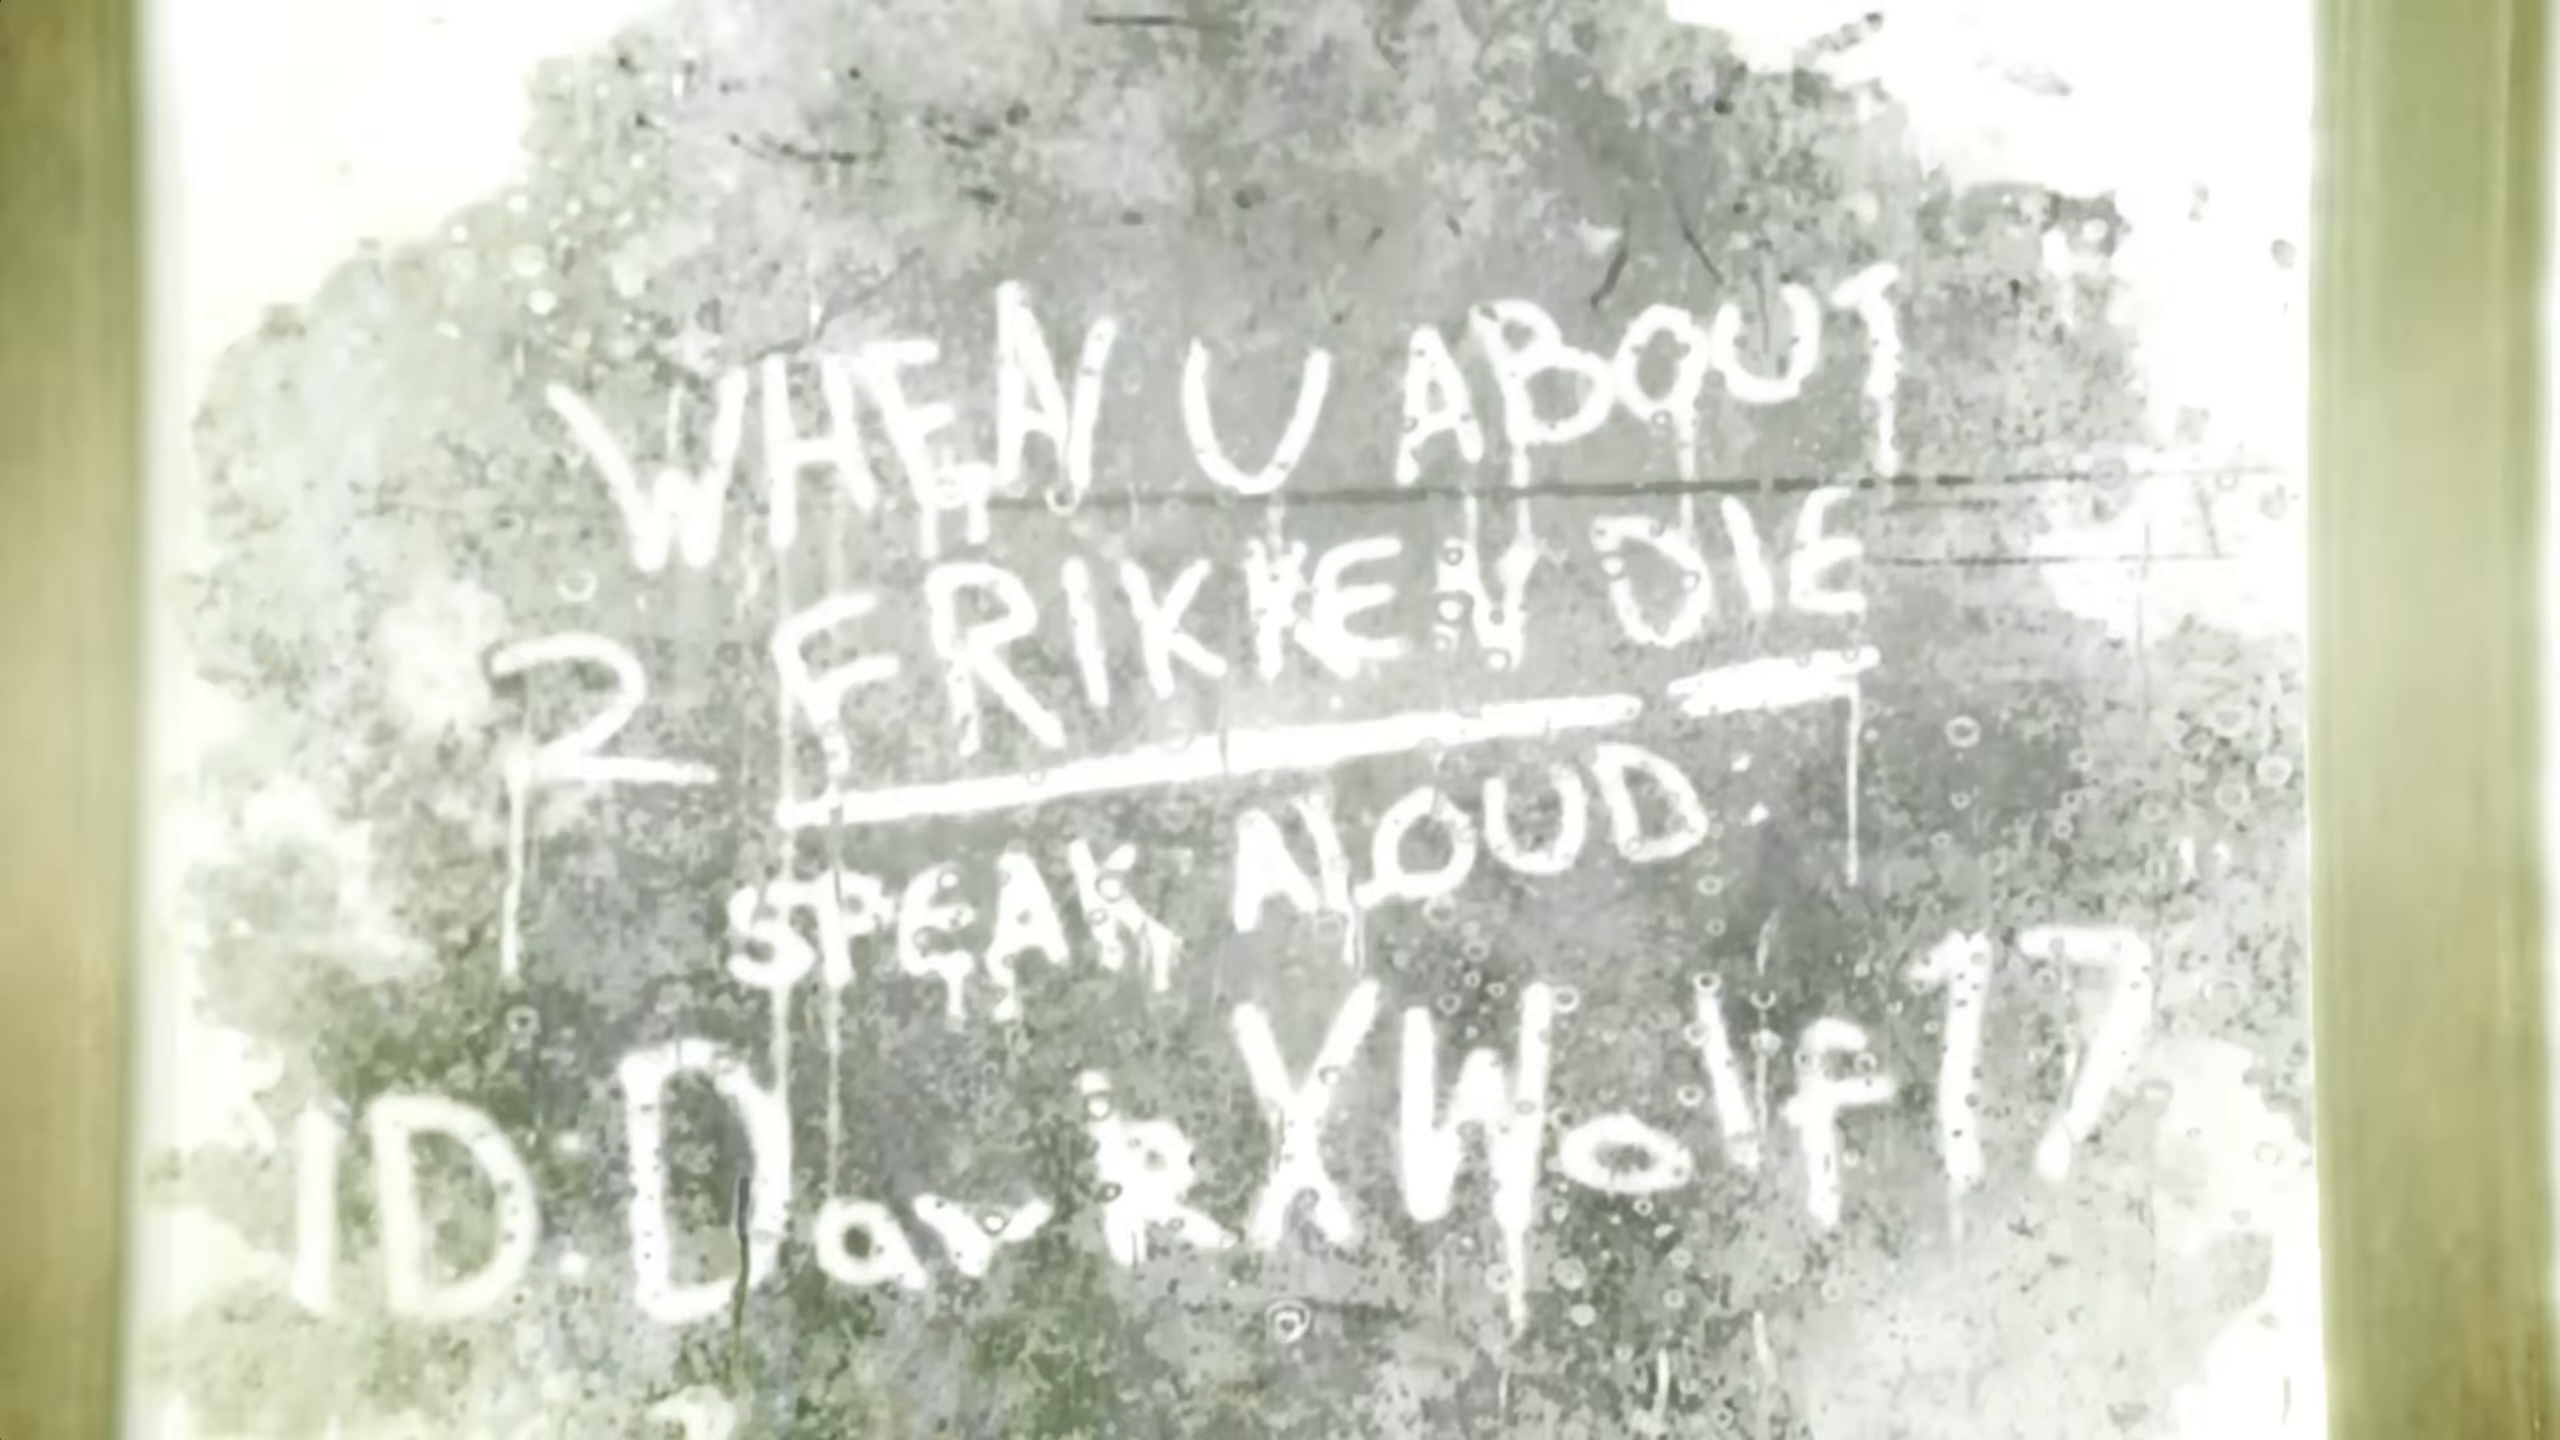 WHEN U ABOUT
2 FRIKKEN DIE
SPEAK ALOUD:
ID: DarkXWolf17